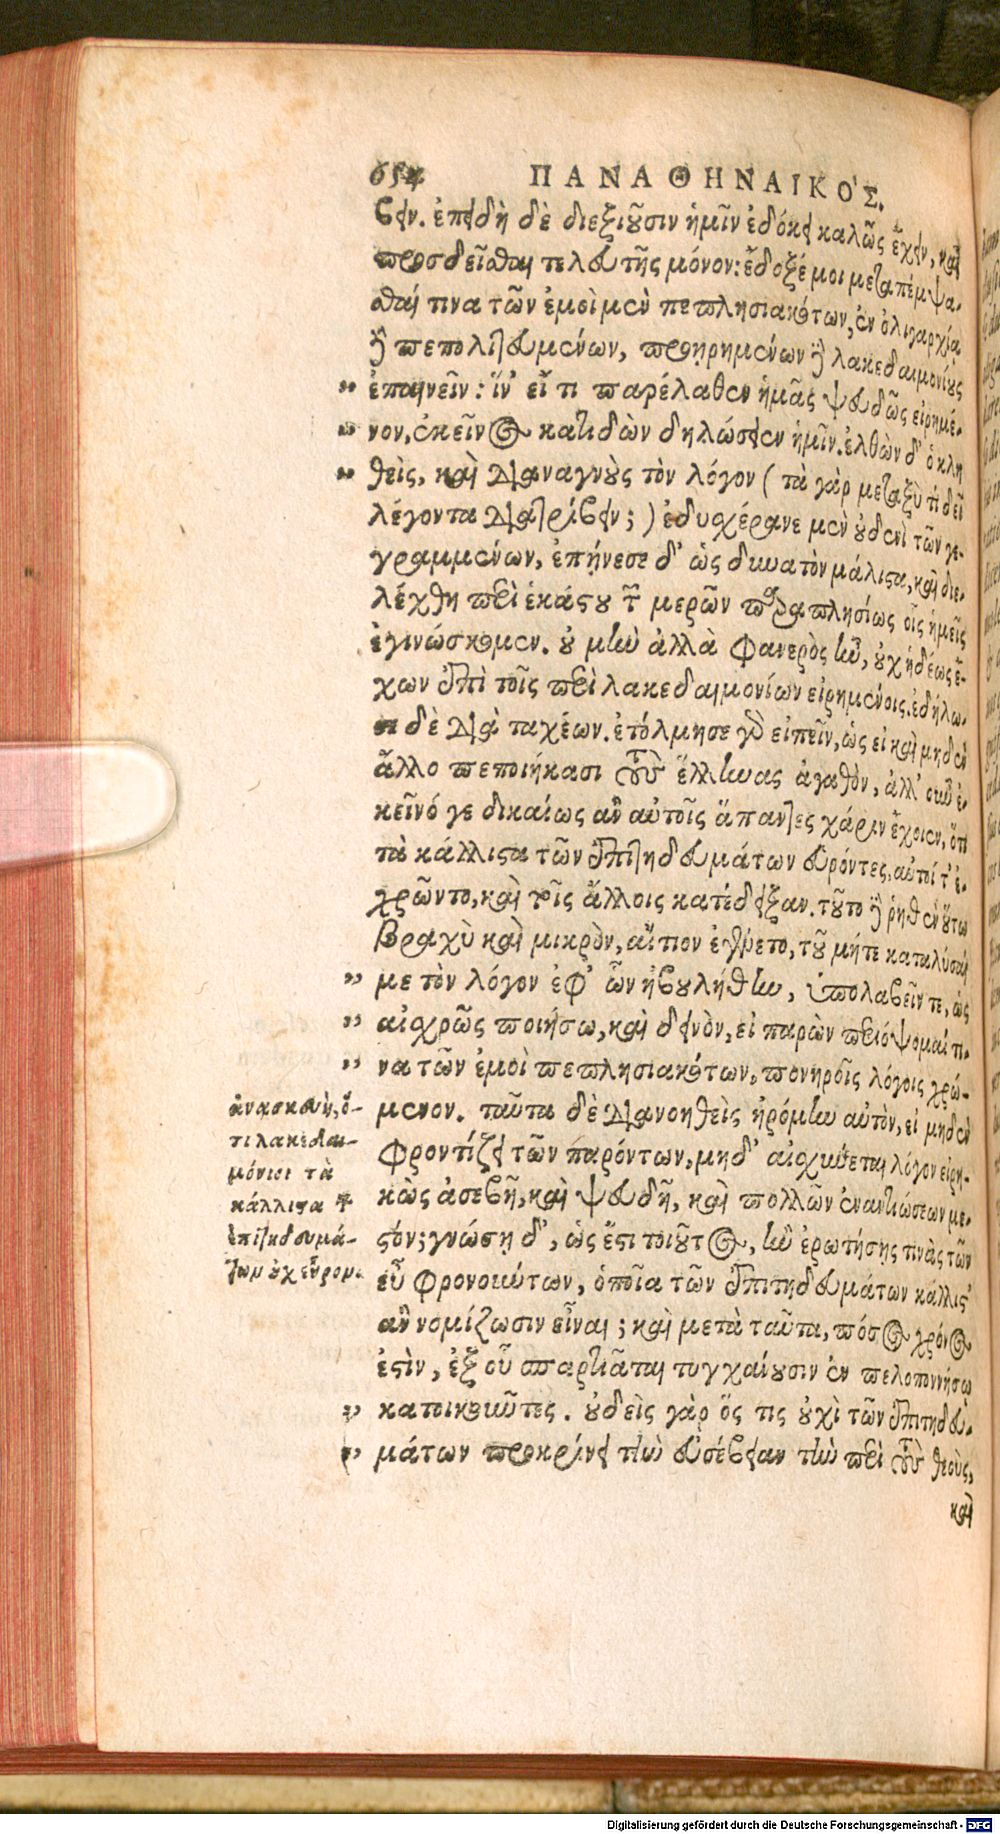 654 ΠΑΝΑΘΗΝΑΙΚΟ΄Σ.
βειν. ἐπειδὴ δὲ διεξιοῦσιν ἡμῖν ἐδόκει καλῶς ἔχειν, καὶ
προσδεῖσθαι τελευτῆς μόνον: ἔδοξέ μοι μεταπέμψα-
σθαί τινα τῶν ἐμοὶ μὲν πεπλησιακότων, ἐν ὀλιγαρχίᾳ
δὲ πεπολιτευμένων, προῃρημένων δὲ λακεδαιμονίους
" ἐπαινεῖν: ἵν' εἴ τι παρέλαθεν ἡμᾶς ψευδῶς εἰρημέ-
" νον, ἐκεῖνος κατιδὼν δηλώσειεν ἡμῖν. ἐλθὼν δ' ὁ κλη
" θεὶς, καὶ διαναγνοὺς τὸν λόγον (τὰ γὰρ μεταξὺ τί δεῖ
λέγοντα διατρίβειν;) ἐδυσχέρανε μὲν οὐδενὶ τῶν γε-
γραμμένων, ἐπῄνεσε δ' ὡς δυνατὸν μάλιστα, καὶ διε-
λέχθη περὶ ἑκάστου τῶν μερῶν παραπλησίως οἷς ἡμεῖς
ἐγινώσκομεν. οὐ μὴν ἀλλὰ φανερὸς ἦν, οὐχ ἡδέως ἔ-
χων ἐπὶ τοῖς περὶ λακεδαιμονίων εἰρημένοις. ἐδήλω-
σε δὲ διὰ ταχέων. ἐτόλμησε γὰρ εἰπεῖν, ὡς εἰ καὶ μηδὲν
ἄλλο πεποιήκασι τοὺς ἕλληνας ἀγαθὸν, ἀλλ' οὖν ἐ-
κεῖνό γε δικαίως ἂν αὐτοῖς ἅπαντες χάριν ἔχοιεν, ὅτι
τὰ κάλλιστα τῶν ἐπιτηδευμάτων εὑρόντες, αὐτοί τ' ἐ-
χρῶντο, καὶ τοῖς ἄλλοις κατέδειξαν. τοῦτο δὲ ῥηθὲν οὕτω
βραχὺ καὶ μικρὸν, αἴτιον ἐγένετο, τοῦ μήτε καταλῦσαί
" με τὸν λόγον ἐφ' ὧν ἠβουλήθην, ὑπολαβεῖν τε, ὡς
" αἰσχρῶς ποιήσω, καὶ δεινὸν, εἰ παρὼν περιόψομαί τι-
" να τῶν ἐμοὶ πεπλησιακότων, πονηροῖς λόγοις χρώ-
μενον. ταῦτα δὲ διανοηθεὶς ἠρόμην αὐτὸν, εἰ μηδὲν
φροντίζει τῶν παρόντων, μηδ' αἰσχύνεται λόγον εἰρη-
κὼς ἀσεβῆ, καὶ ψευδῆ, καὶ πολλῶν ἐναντιώσεων με-
στόν; γνώσῃ δ', ὡς ἔστι τοιοῦτος, ἢν ἐρωτήσῃς τινὰς τῶν
εὖ φρονούντων, ὁποῖα τῶν ἐπιτηδευμάτων κάλλιστ'
ἂν νομίζωσιν εἶναι; καὶ μετὰ ταῦτα, πόσος χρόνος
ἐστὶν, ἐξ οὗ σπαρτιᾶται τυγχάνουσιν ἐν πελοποννήσῳ
" κατοικοῦντες. οὐδεὶς γὰρ ὅς τις οὐχὶ τῶν ἐπιτηδευ-
" μάτων προκρίνει τὴν εὐσέβειαν τὴν περὶ τοὺς θεοὺς,
καὶ
ἀνασκευὴ, ὅ-
τι λακεδαι-
μόνιοι τὰ
κάλλιστα τῶν
ἐπιτηδευμά-
των οὐχ εὗρον.
Digitalisierung gefördert durch die Deutsche Forschungsgemeinschaft - DFG